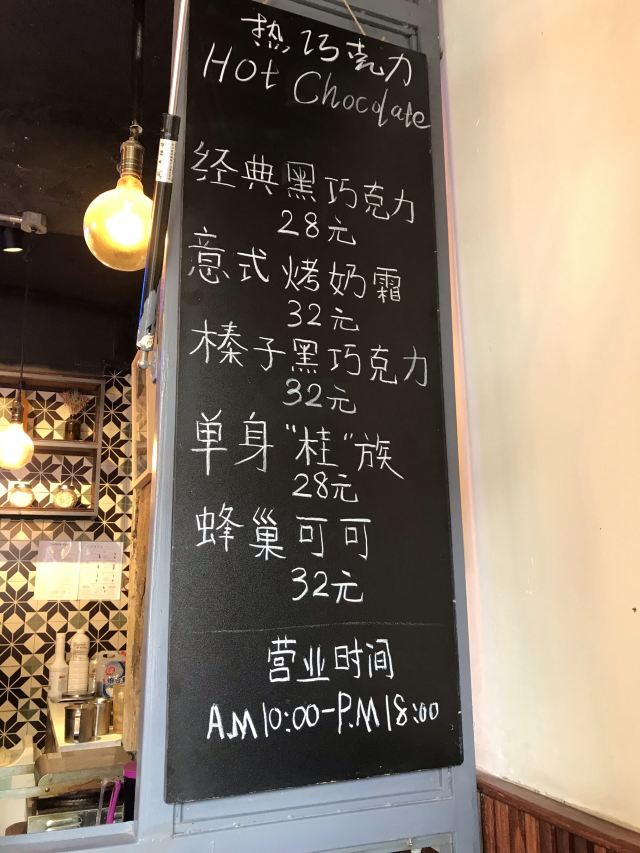 热巧克力
Hot Chocolate
经典黑巧克力
28元
意式烤奶霜
32元
榛子黑巧克力
32元
单身"桂"族
28元
蜂巢可可
32元
营业时间
A.M10:00-P.M18:00